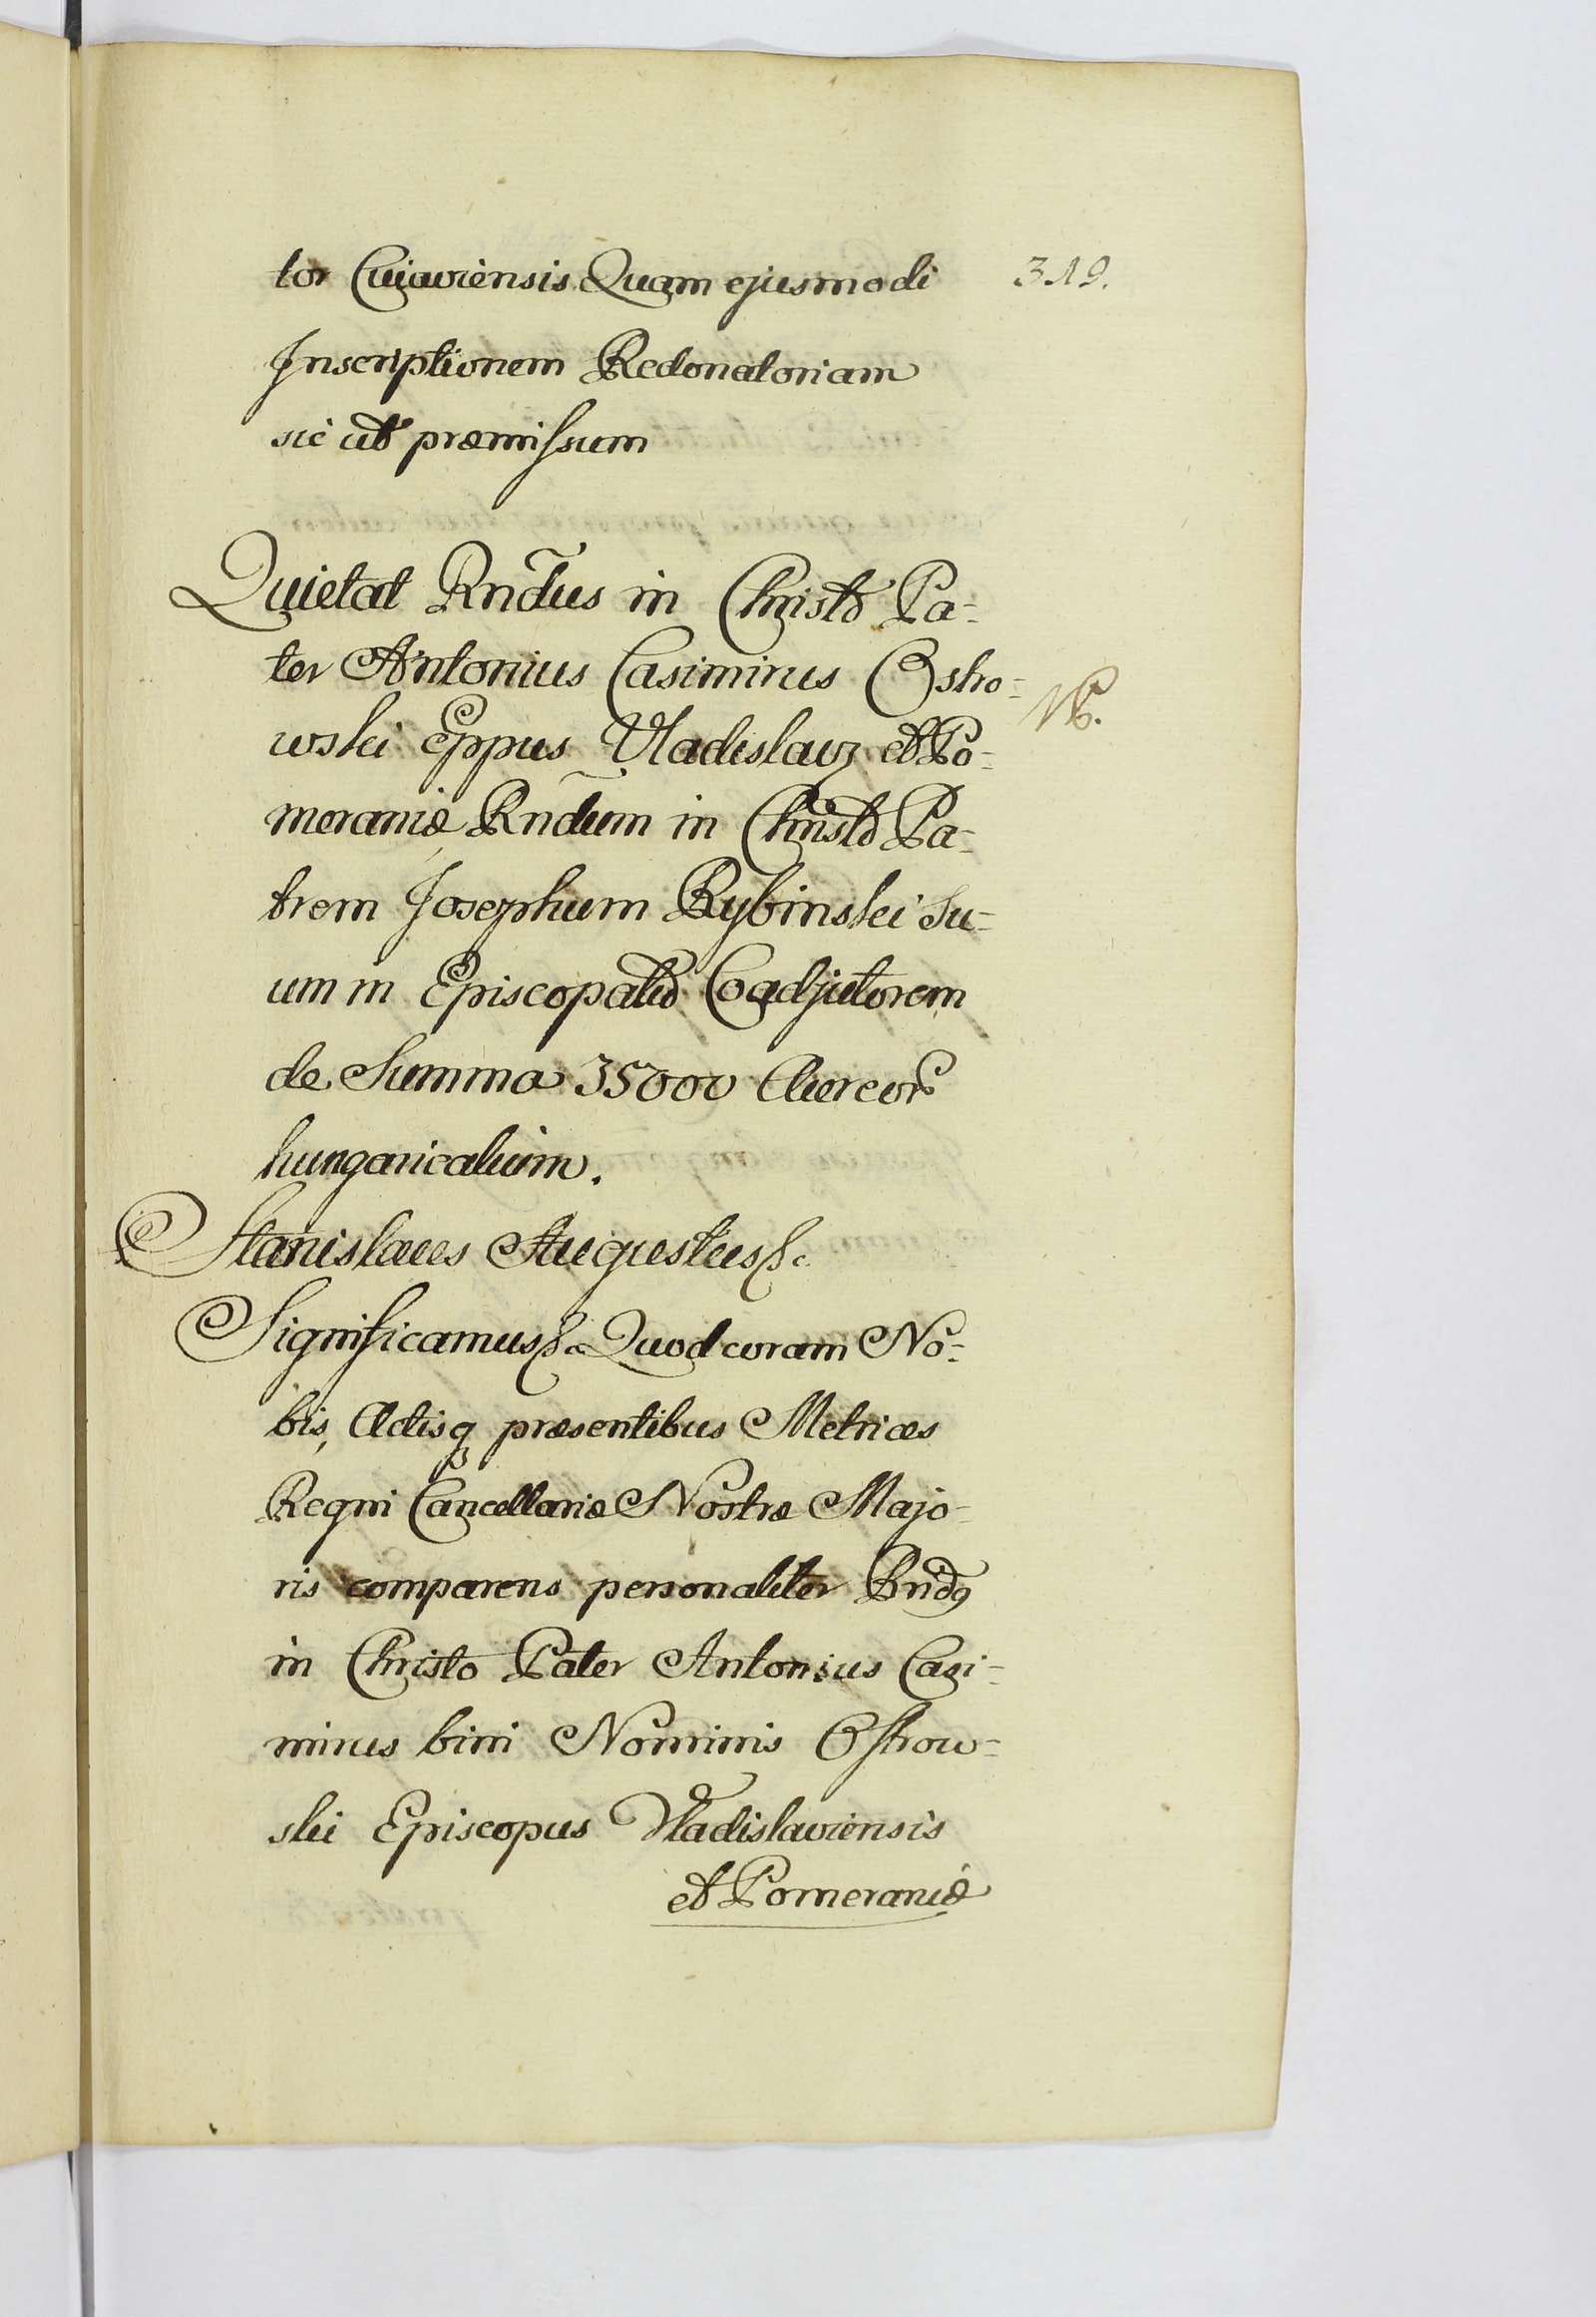 tor Cujaviensis. Quam ejusmodi
319.
Inscriptionem Redonatoriam
sic ut præmissum
Quietat Rndus in Christo Pa-
ter Antonius Casimirus Ostro-
NB.
wski Eppus Vladislav; et Po-
meraniæ Rndum in Christo Pa-
trem Josephum Rybinski Su-
um in Episcopatu Coadjutorem
de Summa 35000 Aureor
hungaricalium.
Stanislaus Augustus &c
Significamus &c Quod coram No-
bis, Actisq presentibus Metrices
Regni Cancellariæ Nostræ Majo-
ris comparens personaliter Rnds
in Christo Pater Antonius Casi-
mirus bini Nominis Ostrow-
ski Episcopus Vladislaviensis
et Pomeraniæ